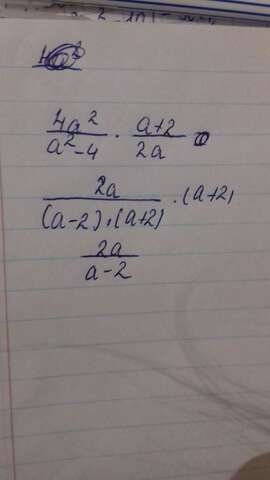 4a² / a²-4 · a+2 / 2a
2a / (a-2)·(a+2) · (a+2)
2a / a-2